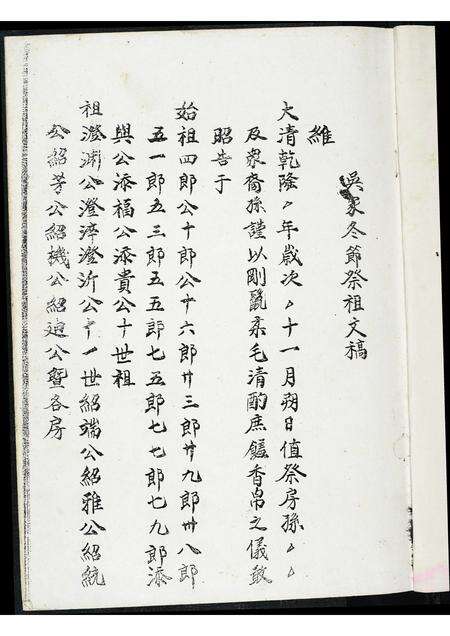 吳家冬節祭祖文稿
維
大清乾隆〻年歲次〻十一月朔日值祭房孫〻〻
及眾裔孫謹以剛鬣柔毛清酌庶饈香帛之儀敢
昭告于
始祖四郎公十郎公十六郎廿三郎廿九郎卅八郎
五一郎五三郎五五郎七五郎七七郎七九郎添
與公添福公添貴公十世祖
祖澄渊公澄淬澄沂公十一世紹端公紹雅公紹統
公紹芳公紹機公紹迪公暨各房